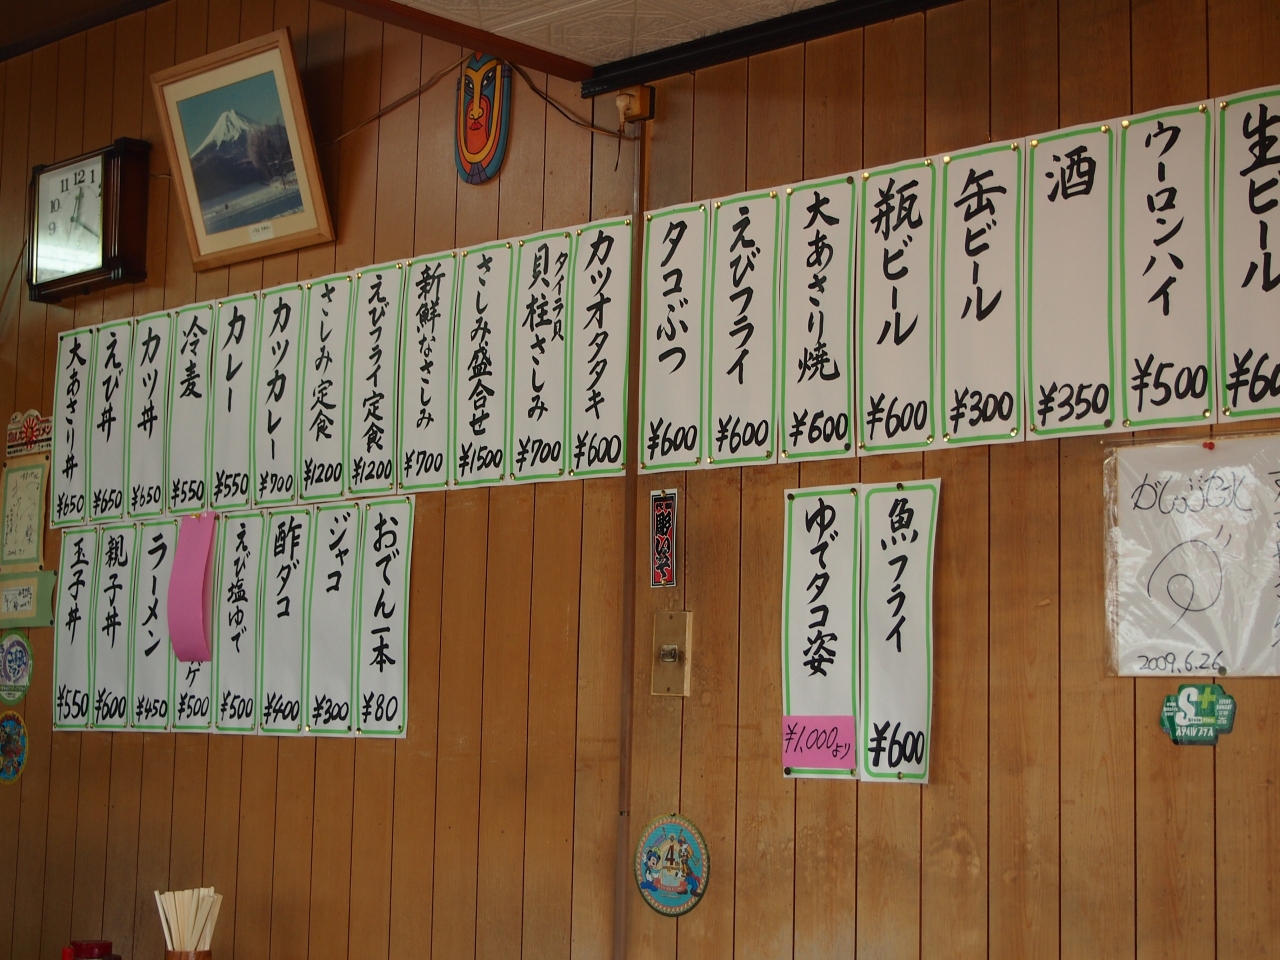 生ビール
ウーロンハイ ¥500
酒 ¥350
缶ビール ¥300
瓶ビール ¥600
大あさり焼 ¥600
えびフライ ¥600
タコぶつ ¥600
カツオタタキ ¥600
タイラ貝
貝柱さしみ ¥700
さしみ盛合せ ¥1500
新鮮なさしみ ¥700
えびフライ定食 ¥1200
さしみ定食 ¥1200
カツカレー ¥700
カレー ¥550
冷麦 ¥550
カツ丼 ¥650
えび丼 ¥650
大あさり丼 ¥650
魚フライ ¥600
ゆでタコ姿 ¥1,000より
おでん一本 ¥80
ジャコ ¥300
酢ダコ ¥400
えび塩ゆで ¥500
ゲ ¥500
ラーメン ¥450
親子丼 ¥600
玉子丼 ¥550
11 12 1
9
2009.6.26
S+
スタイルプラス
4th